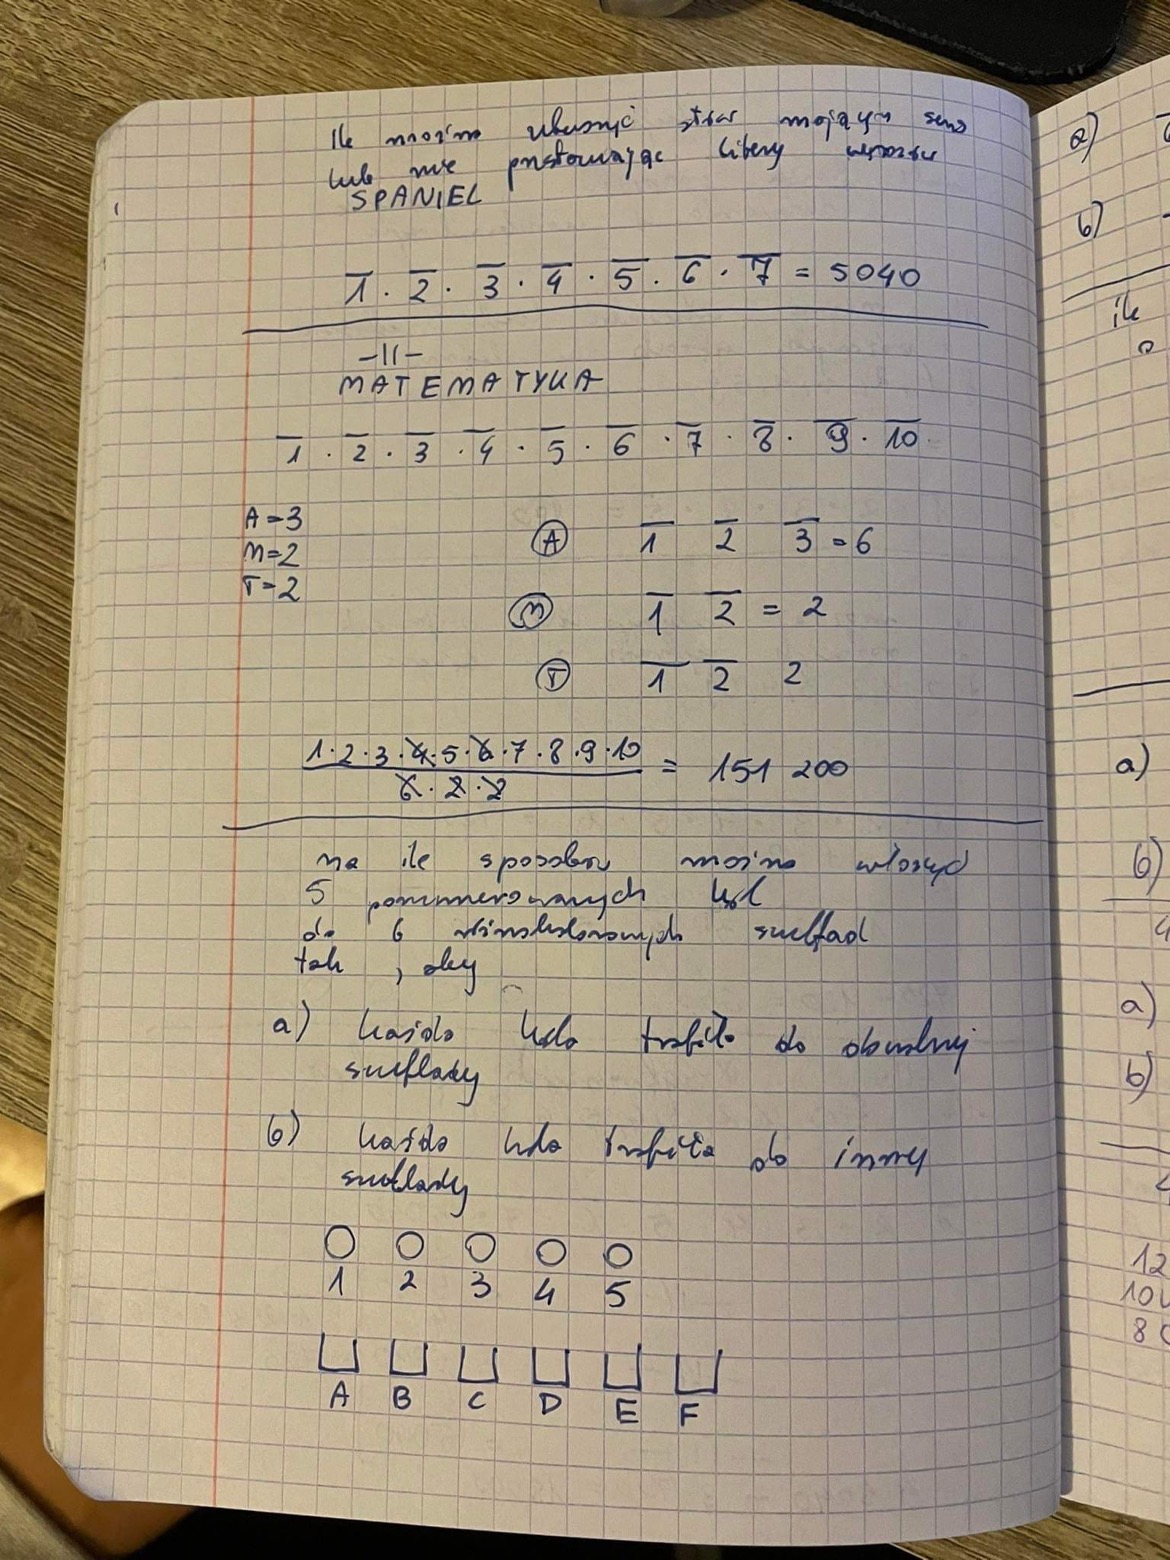 Ile można ułożyć słów mających sens
lub nie przestawiając litery wyrazów
SPANIEL
1 · 2 · 3 · 4 · 5 · 6 · 7 = 5040
-||-
MATEMATYKA
1 · 2 · 3 · 4 · 5 · 6 · 7 · 8 · 9 · 10
A=3
M=2
T=2
A 1 2 3 = 6
M 1 2 = 2
T 1 2 2
1·2·3·4·5·6·7·8·9·10
6·2·2
= 151 200
na ile sposobów można włożyć
5 ponumerowanych kul
do 6 szuflad
tak, aby
a) każda kula trafiła do dowolnej
szuflady
b) każda kula trafiła do innej
szuflady
1 2 3 4 5
A B C D E F
a)
b)
ile
a)
b)
4
a)
b)
12
8